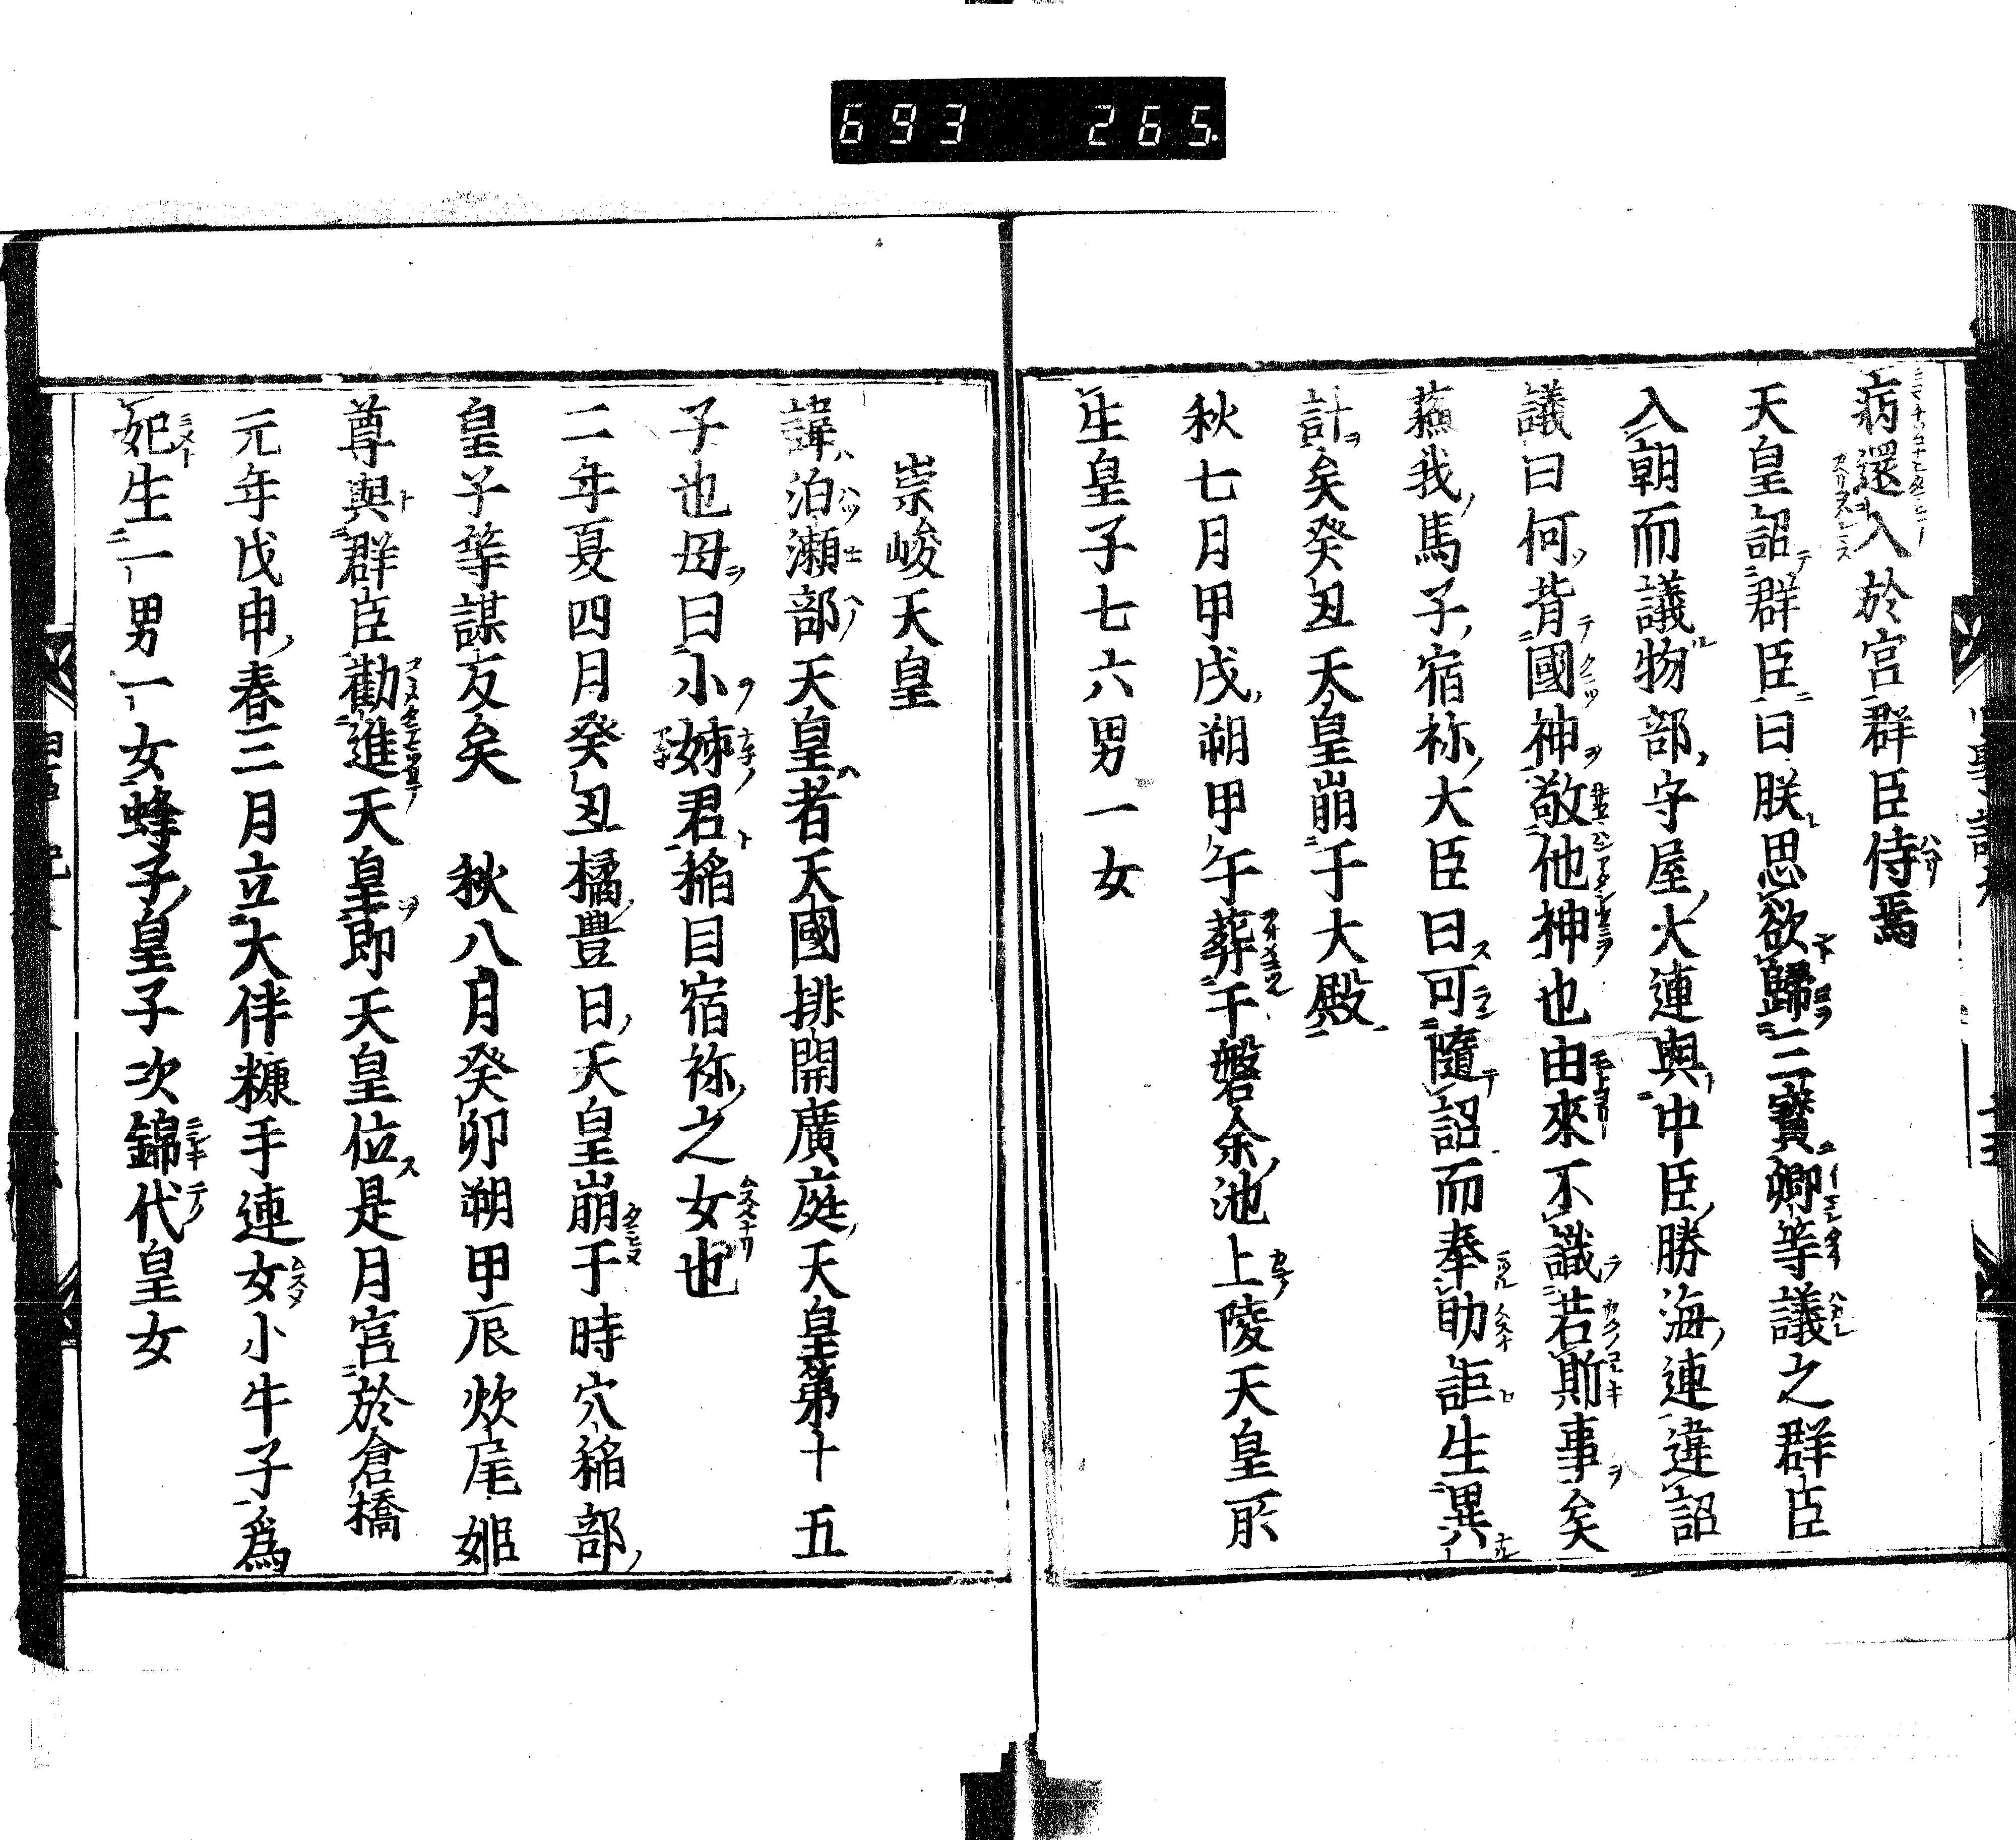 693 265
病還入於宮群臣侍焉
天皇詔群臣曰朕思欲歸三寶卿等議之群臣
入朝而議物部守屋大連與中臣勝海連違詔
議曰何背國神敬他神也由來不識若斯事矣
蘓我馬子宿祢大臣曰可隨詔而奉助詎生異
計矣癸丑天皇崩于大殿
秋七月甲戌朔甲午葬于磐余池上陵天皇所
生皇子七六男一女
崇峻天皇
諱泊瀬部天皇者天國排開廣庭天皇第十五
子也母曰小姉君稲目宿祢之女也
二年夏四月癸丑橘豐日天皇崩于時穴穂部
皇子等謀友矣 秋八月癸卯朔甲辰炊屋姫
尊與群臣勸進天皇即天皇位是月宮於倉橋
元年戊申春三月立大伴糠手連女小牛子爲
妃生一男一女蜂子皇子次錦代皇女